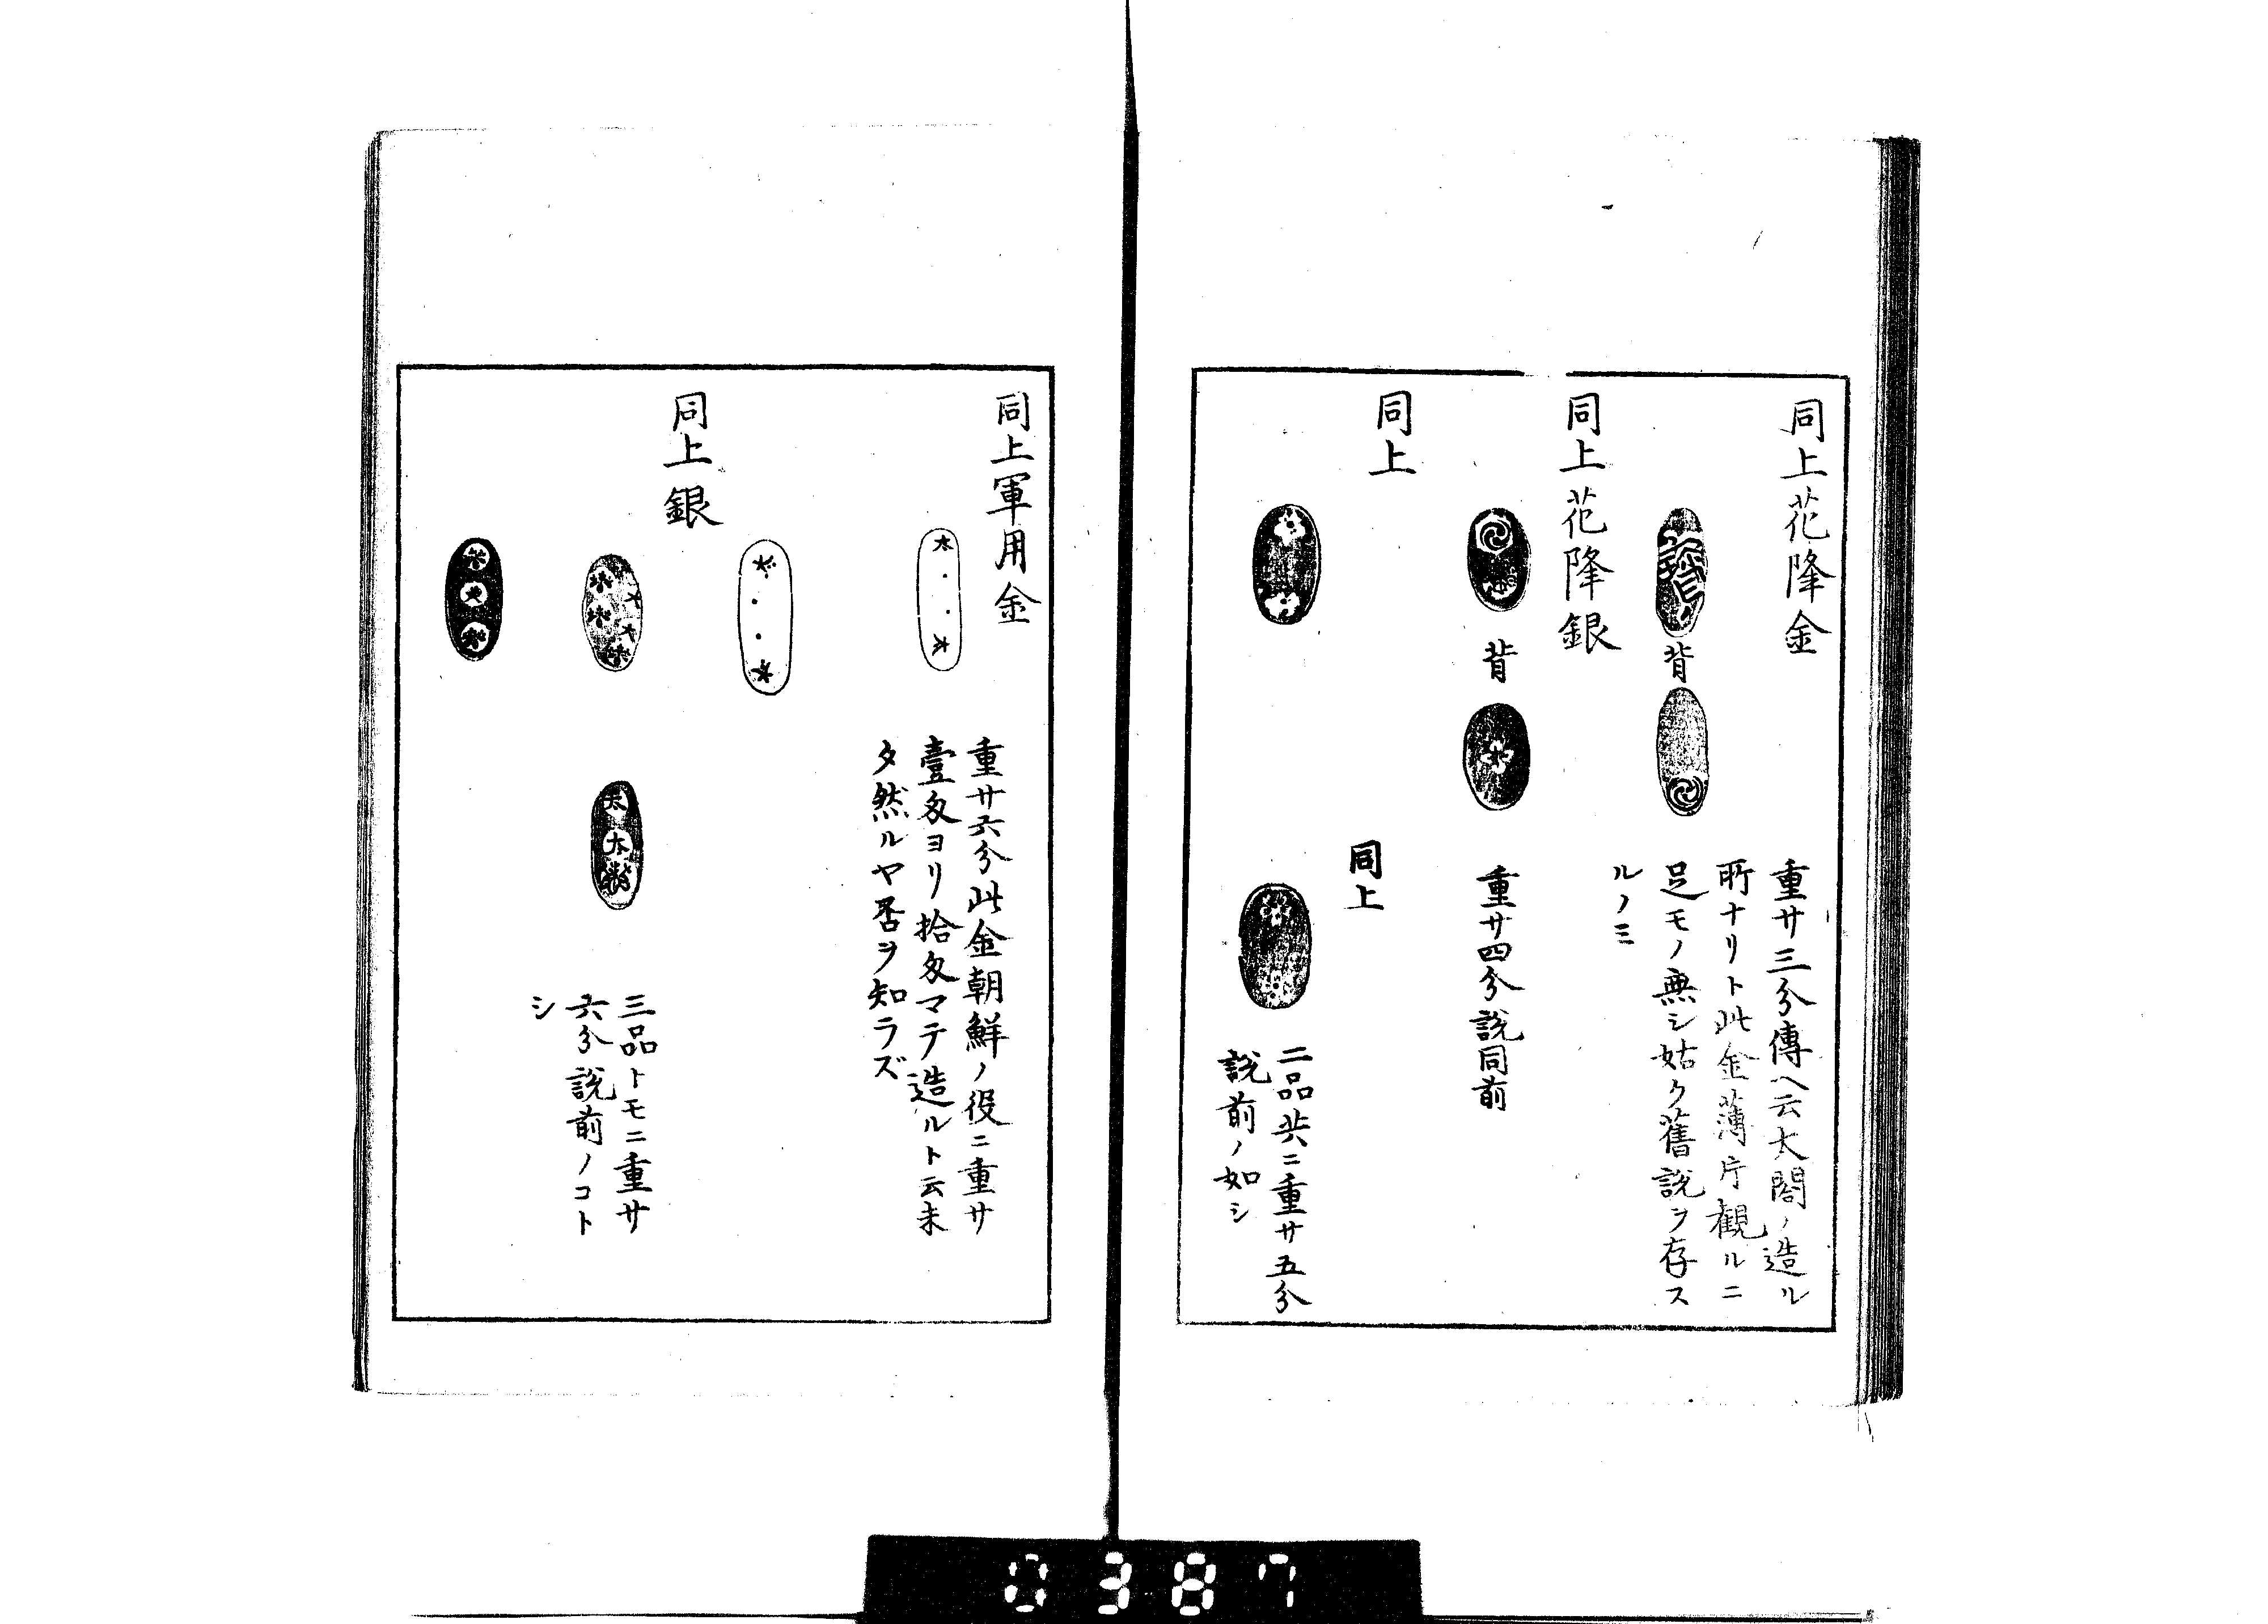 同上花降金
背
重サ三分傳ヘ云太閤ノ造ル
所ナリト此金薄片觀ルニ
足モノ無シ姑ク舊說ヲ存ス
ルノミ
同上花降銀
背
重サ四分說同前
同上
同上
二品共ニ重サ五分
說前ノ如シ
同上軍用金
重サ六分此金朝鮮ノ役ニ重サ
壹匁ヨリ拾匁マテ造ルト云未
タ然ルヤ否ヲ知ラズ
同上銀
三品トモニ重サ
六分說前ノコト
シ
0387